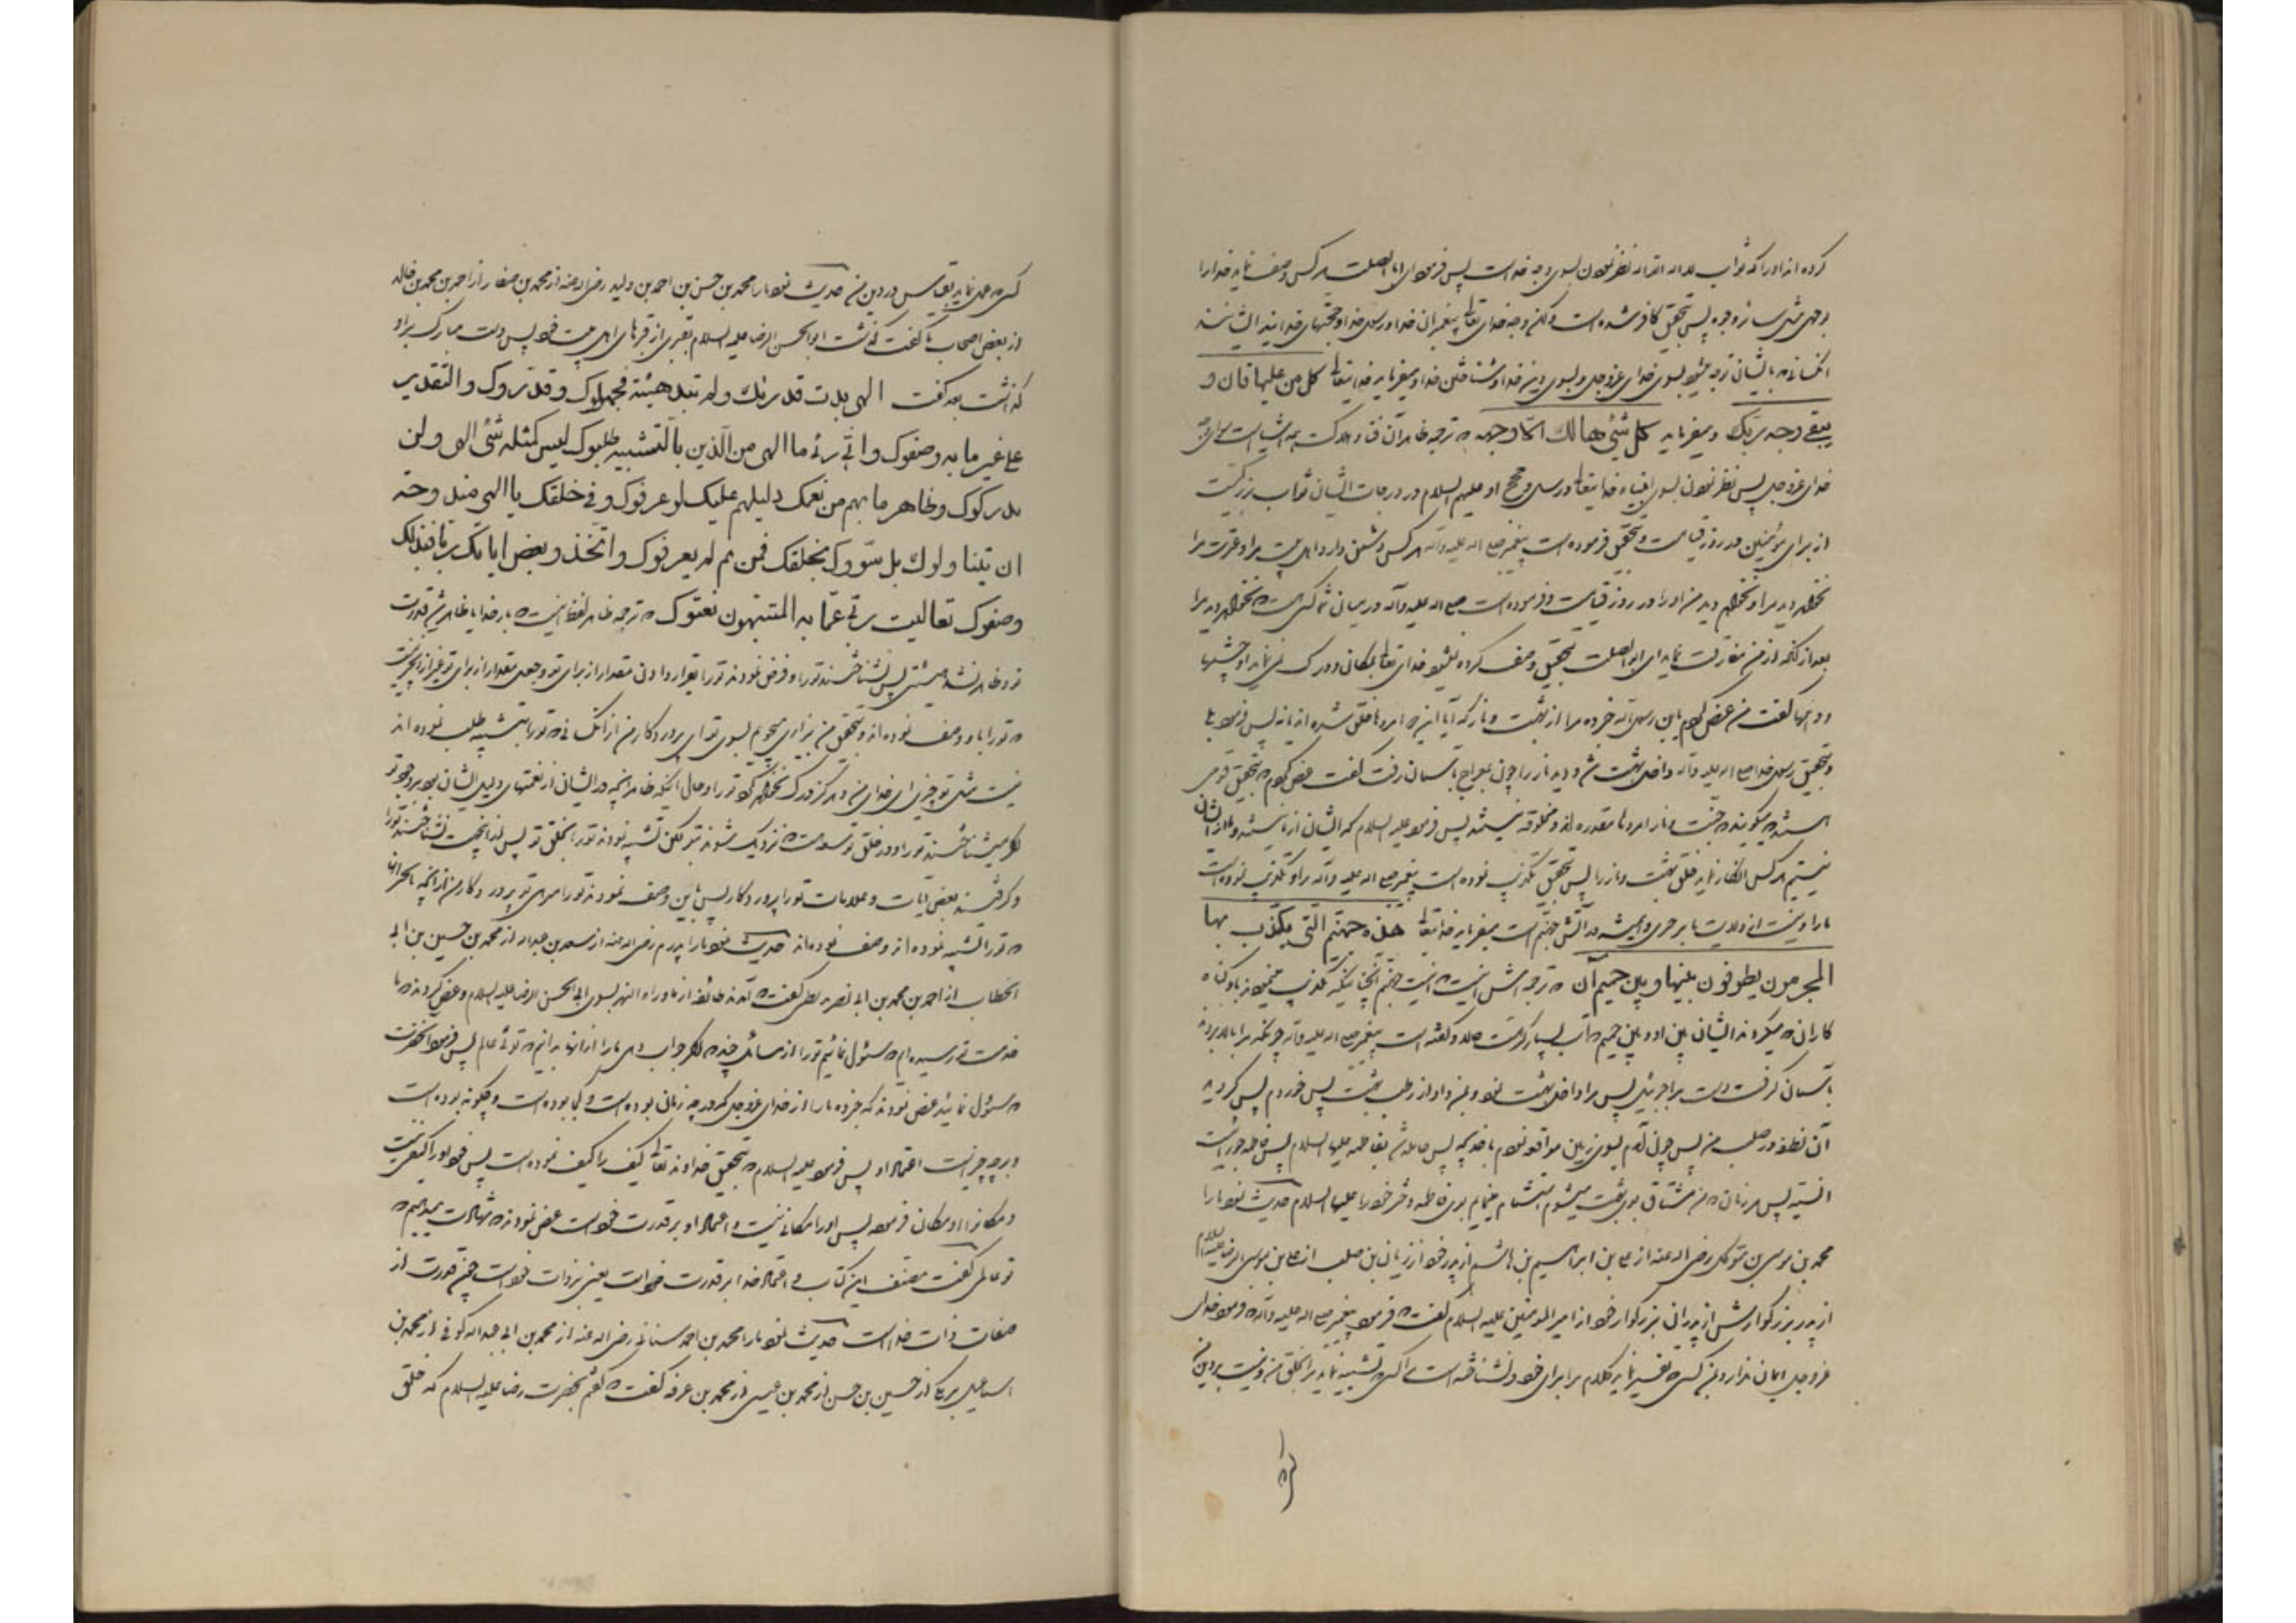 کرده‌اند او را که ثواب لا اله الا الله نظر نمودن بسوی وجه خداست پس فرمود ای ابا الصلت هر کس وصف نماید خدا را
بوجهی مثل سائر وجوه پس بتحقیق کافر شده است ولکن وجه خدای تعالی پیغمبران خدا و رسل خدا و حجتهای خدایند ایشانند
انکسانی که بایشان توجه میشود بسوی خدای عزوجل و بسوی دین خدا و شناختن خدا و میفرماید خدایتعالی کل من علیها فان و
یبقی وجه ربک و میفرماید کل شیء هالک الا وجهه که ترجمه ظاهر آن فنا و هلاکت همه اشیاست سوای وجه
خدای عزوجل پس نظر نمودن بسوی انبیاء خدایتعالی و رسل و حجج او علیهم السلام در درجات ایشان ثواب بزرگیست
از برای مؤمنین در روز قیامت و بتحقیق فرموده است پیغمبر صلی الله علیه و آله هر کس دشمن دارد اهل بیت مرا و عترت مرا
نخواهد دید مرا و نخواهم دید من او را در روز قیامت و فرموده است صلی الله علیه و آله در میان شما کسی است که نخواهد دید مرا
بعد از آنکه از من مفارقت نماید ای ابو الصلت بتحقیق وصف کرده نمیشود خدای تعالی بمکان و درک نمی‌نماید او را چشمها
و وهمها گفت من عرض کردم یابن رسول الله خبر ده مرا از بهشت و نار که آیا این که امروز خلق شده‌اند یا نه پس فرمود بلی
و بتحقیق رسول خدا صلی الله علیه و آله داخل بهشت شد و دید نار را چون بمعراج باسمان رفت گفت عرض کردم که بتحقیق قومی
هستند میگویند که جنت و نار امروز مقدره‌اند و مخلوقه نیستند پس فرمود علیه السلام که ایشان از ما نیستند و ما از ایشان
نیستیم هر کس انکار نماید خلق بهشت و نار را پس بتحقیق تکذیب نموده است پیغمبر صلی الله علیه و آله را و تکذیب نموده است
ما را و نیست از ولایت ما بر چیزی و همیشه در آتش جهنم است میفرماید خدایتعالی هذه جهنم التی یکذب بها
المجرمون یطوفون بینها و بین حمیم آن که ترجمه‌اش اینست که اینست جهنم آنچنانیکه تکذیب مینمودند باو گناه
کاران که میگردند ایشان بین او و بین حمیم که آب بسیار گرمست و گفته است پیغمبر صلی الله علیه و آله چونکه مرا بالا بردند
باسمان گرفت دست مرا جبرئیل پس مرا داخل بهشت نمود و بمن داد از رطب بهشت پس خوردم پس گردید
آن نطفه در صلب من پس چون آمدم بسوی زمین مواقعه نمودم با خدیجه پس حامله شد بفاطمه علیها السلام پس فاطمه حوراست
انسیه پس هر زمان که من مشتاق بوی بهشت میشوم استشمام مینمایم بوی فاطمه دختر خود را علیها السلام حدیث نمود ما را
محمد بن موسی بن متوکل رضی الله عنه از علی بن ابراهیم بن هاشم از پدر خود از ریان بن صلت از علی بن موسی الرضا علیه السلام
از پدر بزرگوارش از پدران بزرگوار خود از امیر المومنین علیه السلام گفت که فرمود پیغمبر صلی الله علیه و آله که فرمود خدای
عزوجل ایمان ندارد بمن کسی که تفسیر نماید کلام مرا برای خود و نشناخته است مرا کسی که تشبیه نماید مرا بخلق من و نیست بر دین من
کسی که
کسی که عمل نماید بقیاس در دین من حدیث نمود ما را محمد بن حسن بن احمد بن ولید رضی الله عنه از محمد بن صفار از احمد بن محمد بن خالد
از بعض اصحاب ما گفت گذشت ابو الحسن الرضا علیه السلام بقبری از قبرهای اهل بیت خود پس دست مبارک بر او
گذاشت بعد گفت الهی بدت قدرتک ولم تبد هیئة فجهلوک وقدروک والتقدیر
علی غیر ما به وصفوک وانی بریء یا الهی من الذین بالتشبیه طلبوک لیس کمثله شیء الهی ولن
یدرکوک وظاهر ما بهم من نعمک دلیلهم علیک لو عرفوک وفی خلقک یا الهی مندوحة
ان یتناولوک بل سووک بخلقک فمن ثم لم یعرفوک واتخذوا بعض ایاتک ربا فبذلک
وصفوک تعالیت ربی عما به المشبهون نعتوک که ترجمه ظاهر لفظ اینست که بار خدایا ظاهر شد قدرت
تو و ظاهر نشد هیئتی پس نشناختند تو را و فرض نمودند تو را بقرار دادن مقدار از برای تو و جعل مقدار از برای تو غیر از چیزیست
که تو را باو وصف نموده‌اند و بتحقیق من بیزاری میجویم بسوی تو ای پروردگار من از آنکسانی که تو را بتشبیه طلب نموده‌اند
نیست مثل تو چیزی ای خدای من و هرگز درک نخواهند کرد تو را و حال آنکه ظاهر آنچه در ایشان از نعمتهای تو دلیل ایشان بود بر وجود تو
اگر میشناختند تو را و در خلق تو وسعت که نزدیک شوند بتو لکن تشبیه نمودند تو را بخلق تو پس از اینجهت نشناختند تو را
و گرفتند بعض آیات و علامات تو را پروردگار پس باین وصف نمودند تو را برتری تو پروردگار من از آنچه
که تو را تشبیه نموده‌اند و وصف نموده‌اند حدیث نمود ما را پدرم رضی الله عنه از سعد بن عبدالله از محمد بن حسین بن ابی
الخطاب از احمد بن محمد بن ابی نصر بزنطی گفت که آمدند طائفه از ماوراء النهر بسوی ابی الحسن الرضا علیه السلام و عرض کردند که ما
خدمت تو رسیده‌ایم که سئوال نمائیم تو را از مسائل چند که اگر جواب دهی ما را از آنها بدانیم که توئی عالم پس فرمود آنحضرت
که سئوال نمائید عرض نمودند که خبر ده ما را از خدای عزوجل که در چه زمان بوده است و کجا بوده است و چگونه بوده است
و بر چه چیز است اعتماد او پس فرمود علیه السلام که بتحقیق خداوند تعالی کیف را کیف نموده است پس خود او را کیفی نیست
و مکان را او مکان فرمود پس او را مکانی نیست و اعتماد او بر قدرت خود است عرض نمودند که شهادت میدهیم که
تو عالمی گفت مصنف این کتاب که اعتماد خدا بر قدرت خود است یعنی بر ذات خود است چه قدرت از
صفات ذات خداست حدیث نمود ما را محمد بن احمد سنانی رضی الله عنه از محمد بن ابی عبدالله کوفی از محمد بن
اسماعیل برمکی از حسین بن حسن از محمد بن عیسی از محمد بن عرفه گفت که گفتم بحضرت رضا علیه السلام که خلق